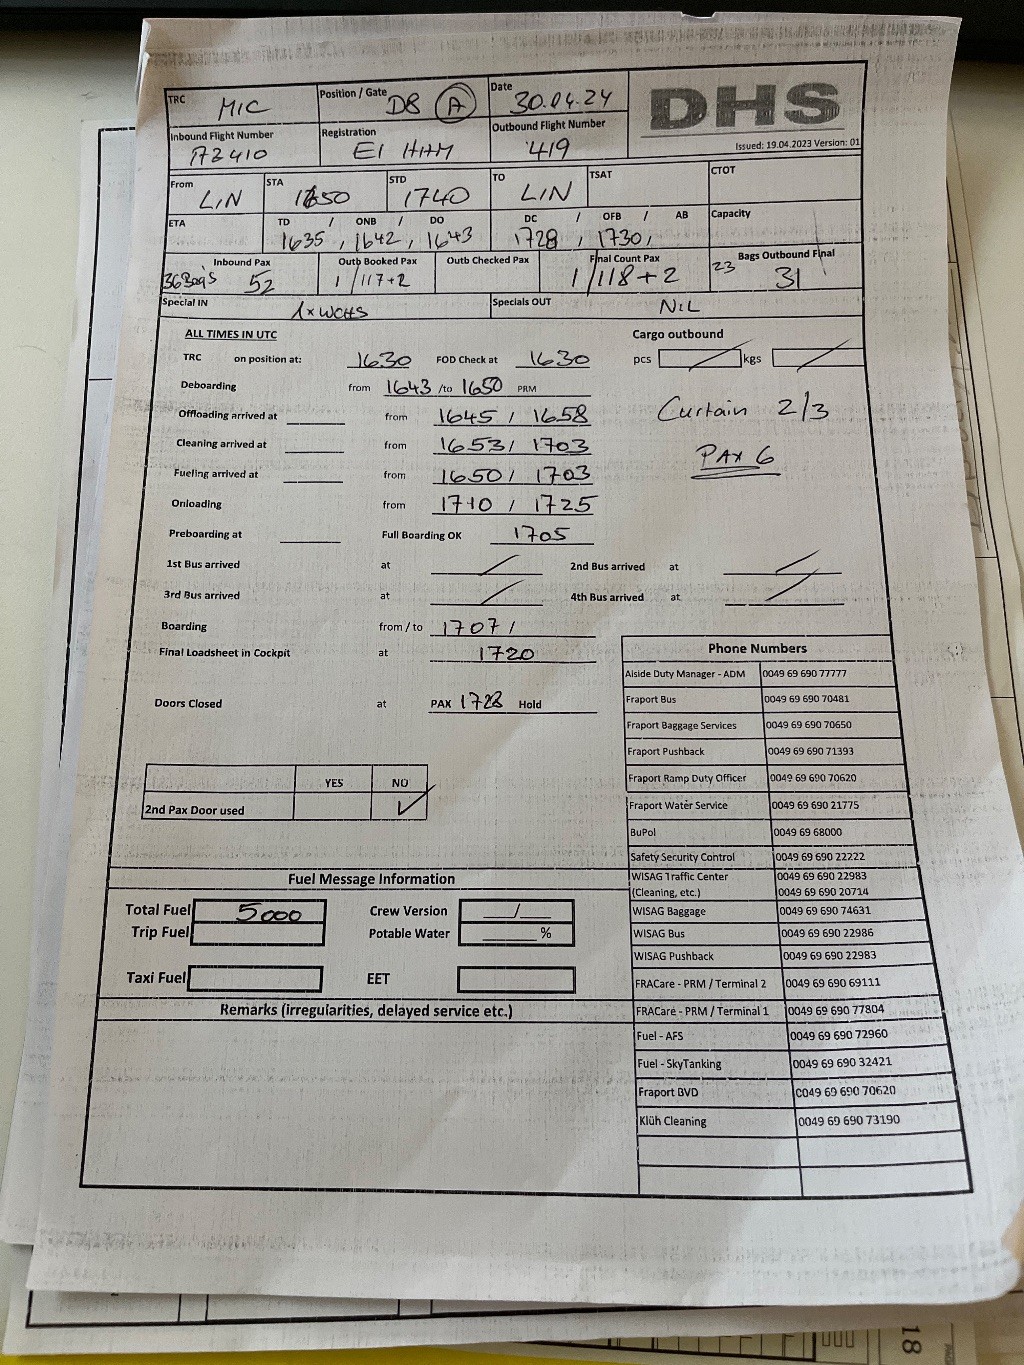 TRC MIC Position / Gate D8 A Date 30.04.24 DHS
Inbound Flight Number AZ410 Registration EI HHM Outbound Flight Number 419 Issued: 19.04.2023 Version: 01
From LIN STA 1650 STD 1740 TO LIN TSAT CTOT
ETA TD / ONB / DO 1635 , 1642 , 1643 DC / OFB / AB 1728 , 1730 , Capacity
Inbound Pax 36Bag's 52 Outb Booked Pax 1 / 117+2 Outb Checked Pax Final Count Pax 1 / 118+2 Bags Outbound Final 23 31
Special IN 1x WCHS Specials OUT NIL
ALL TIMES IN UTC Cargo outbound
TRC on position at: 1630 FOD Check at 1630 pcs kgs
Deboarding from 1643 /to 1650 PRM
Offloading arrived at from 1645 / 1658 Curtain 2/3
Cleaning arrived at from 1653 / 1703 PAX 6
Fueling arrived at from 1650 / 1703
Onloading from 1710 / 1725
Preboarding at Full Boarding OK 1705
1st Bus arrived at 2nd Bus arrived at
3rd Bus arrived at 4th Bus arrived at
Boarding from / to 1707 /
Final Loadsheet in Cockpit at 1720
Doors Closed at PAX 1728 Hold
YES NO
2nd Pax Door used ✓
Fuel Message Information
Total Fuel 5000 Crew Version /
Trip Fuel Potable Water %
Taxi Fuel EET
Remarks (irregularities, delayed service etc.)
Phone Numbers
Alside Duty Manager - ADM 0049 69 690 77777
Fraport Bus 0049 69 690 70481
Fraport Baggage Services 0049 69 690 70650
Fraport Pushback 0049 69 690 71393
Fraport Ramp Duty Officer 0049 69 690 70620
Fraport Water Service 0049 69 690 21775
BuPol 0049 69 68000
Safety Security Control 0049 69 690 22222
WISAG Traffic Center 0049 69 690 22983
(Cleaning, etc.) 0049 69 690 20714
WISAG Baggage 0049 69 690 74631
WISAG Bus 0049 69 690 22986
WISAG Pushback 0049 69 690 22983
FRACare - PRM / Terminal 2 0049 69 690 69111
FRACare - PRM / Terminal 1 0049 69 690 77804
Fuel - AFS 0049 69 690 72960
Fuel - SkyTanking 0049 69 690 32421
Fraport BVD 0049 69 690 70620
Klüh Cleaning 0049 69 690 73190
18